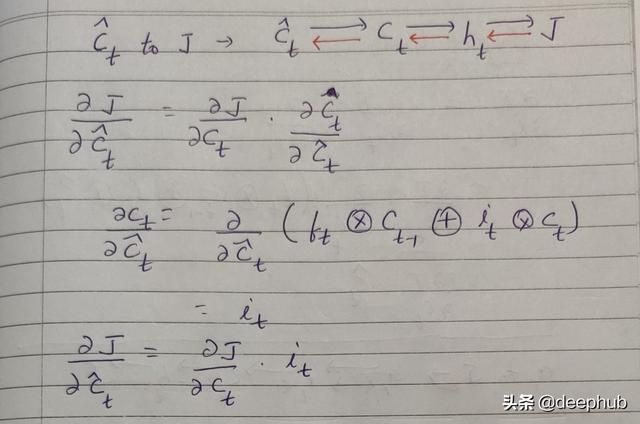 Ĉ_t to J → Ĉ_t ⇄ C_t ⇄ h_t ⇄ J
∂J/∂Ĉ_t = ∂J/∂C_t · ∂Ĉ_t/∂Ĉ_t
∂C_t/∂Ĉ_t = ∂/∂Ĉ_t (f_t ⊗ C_{t-1} ⊕ i_t ⊗ C_t)
= i_t
∂J/∂Ĉ_t = ∂J/∂C_t · i_t
头条 @deephub